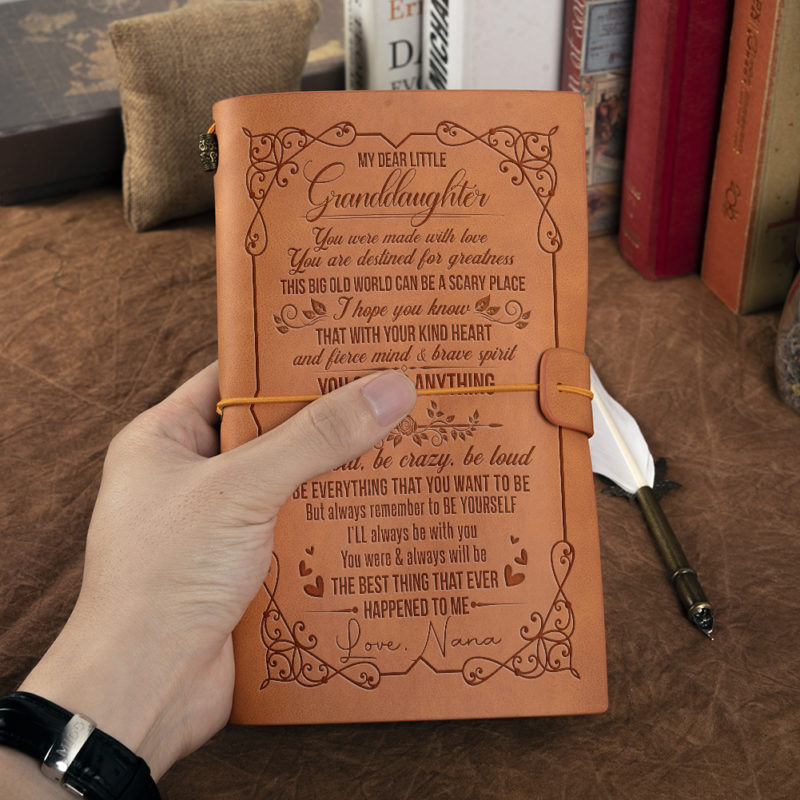 MY DEAR LITTLE
Granddaughter
You were made with love
You are destined for greatness
THIS BIG OLD WORLD CAN BE A SCARY PLACE
I hope you know
THAT WITH YOUR KIND HEART
and fierce mind & brave spirit
YOU ANYTHING
be crazy, be loud
BE EVERYTHING THAT YOU WANT TO BE
But always remember to BE YOURSELF
I'LL always be with you
You were & always will be
THE BEST THING THAT EVER
HAPPENED TO ME
Love, Nana